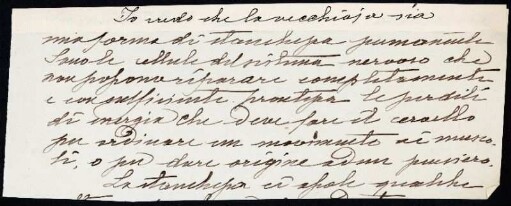 Io credo che la vecchiaja sia
una forma di stanchezza permanente
Sono le cellule del sistema nervoso che
non possono riparare completamente
e con sufficiente prontezza le perdite
di energia che deve fare il cervello
per ordinare un movimento ai musco-
li, o per dare origine ad un pensiero.
La stanchezza ci assale qualche